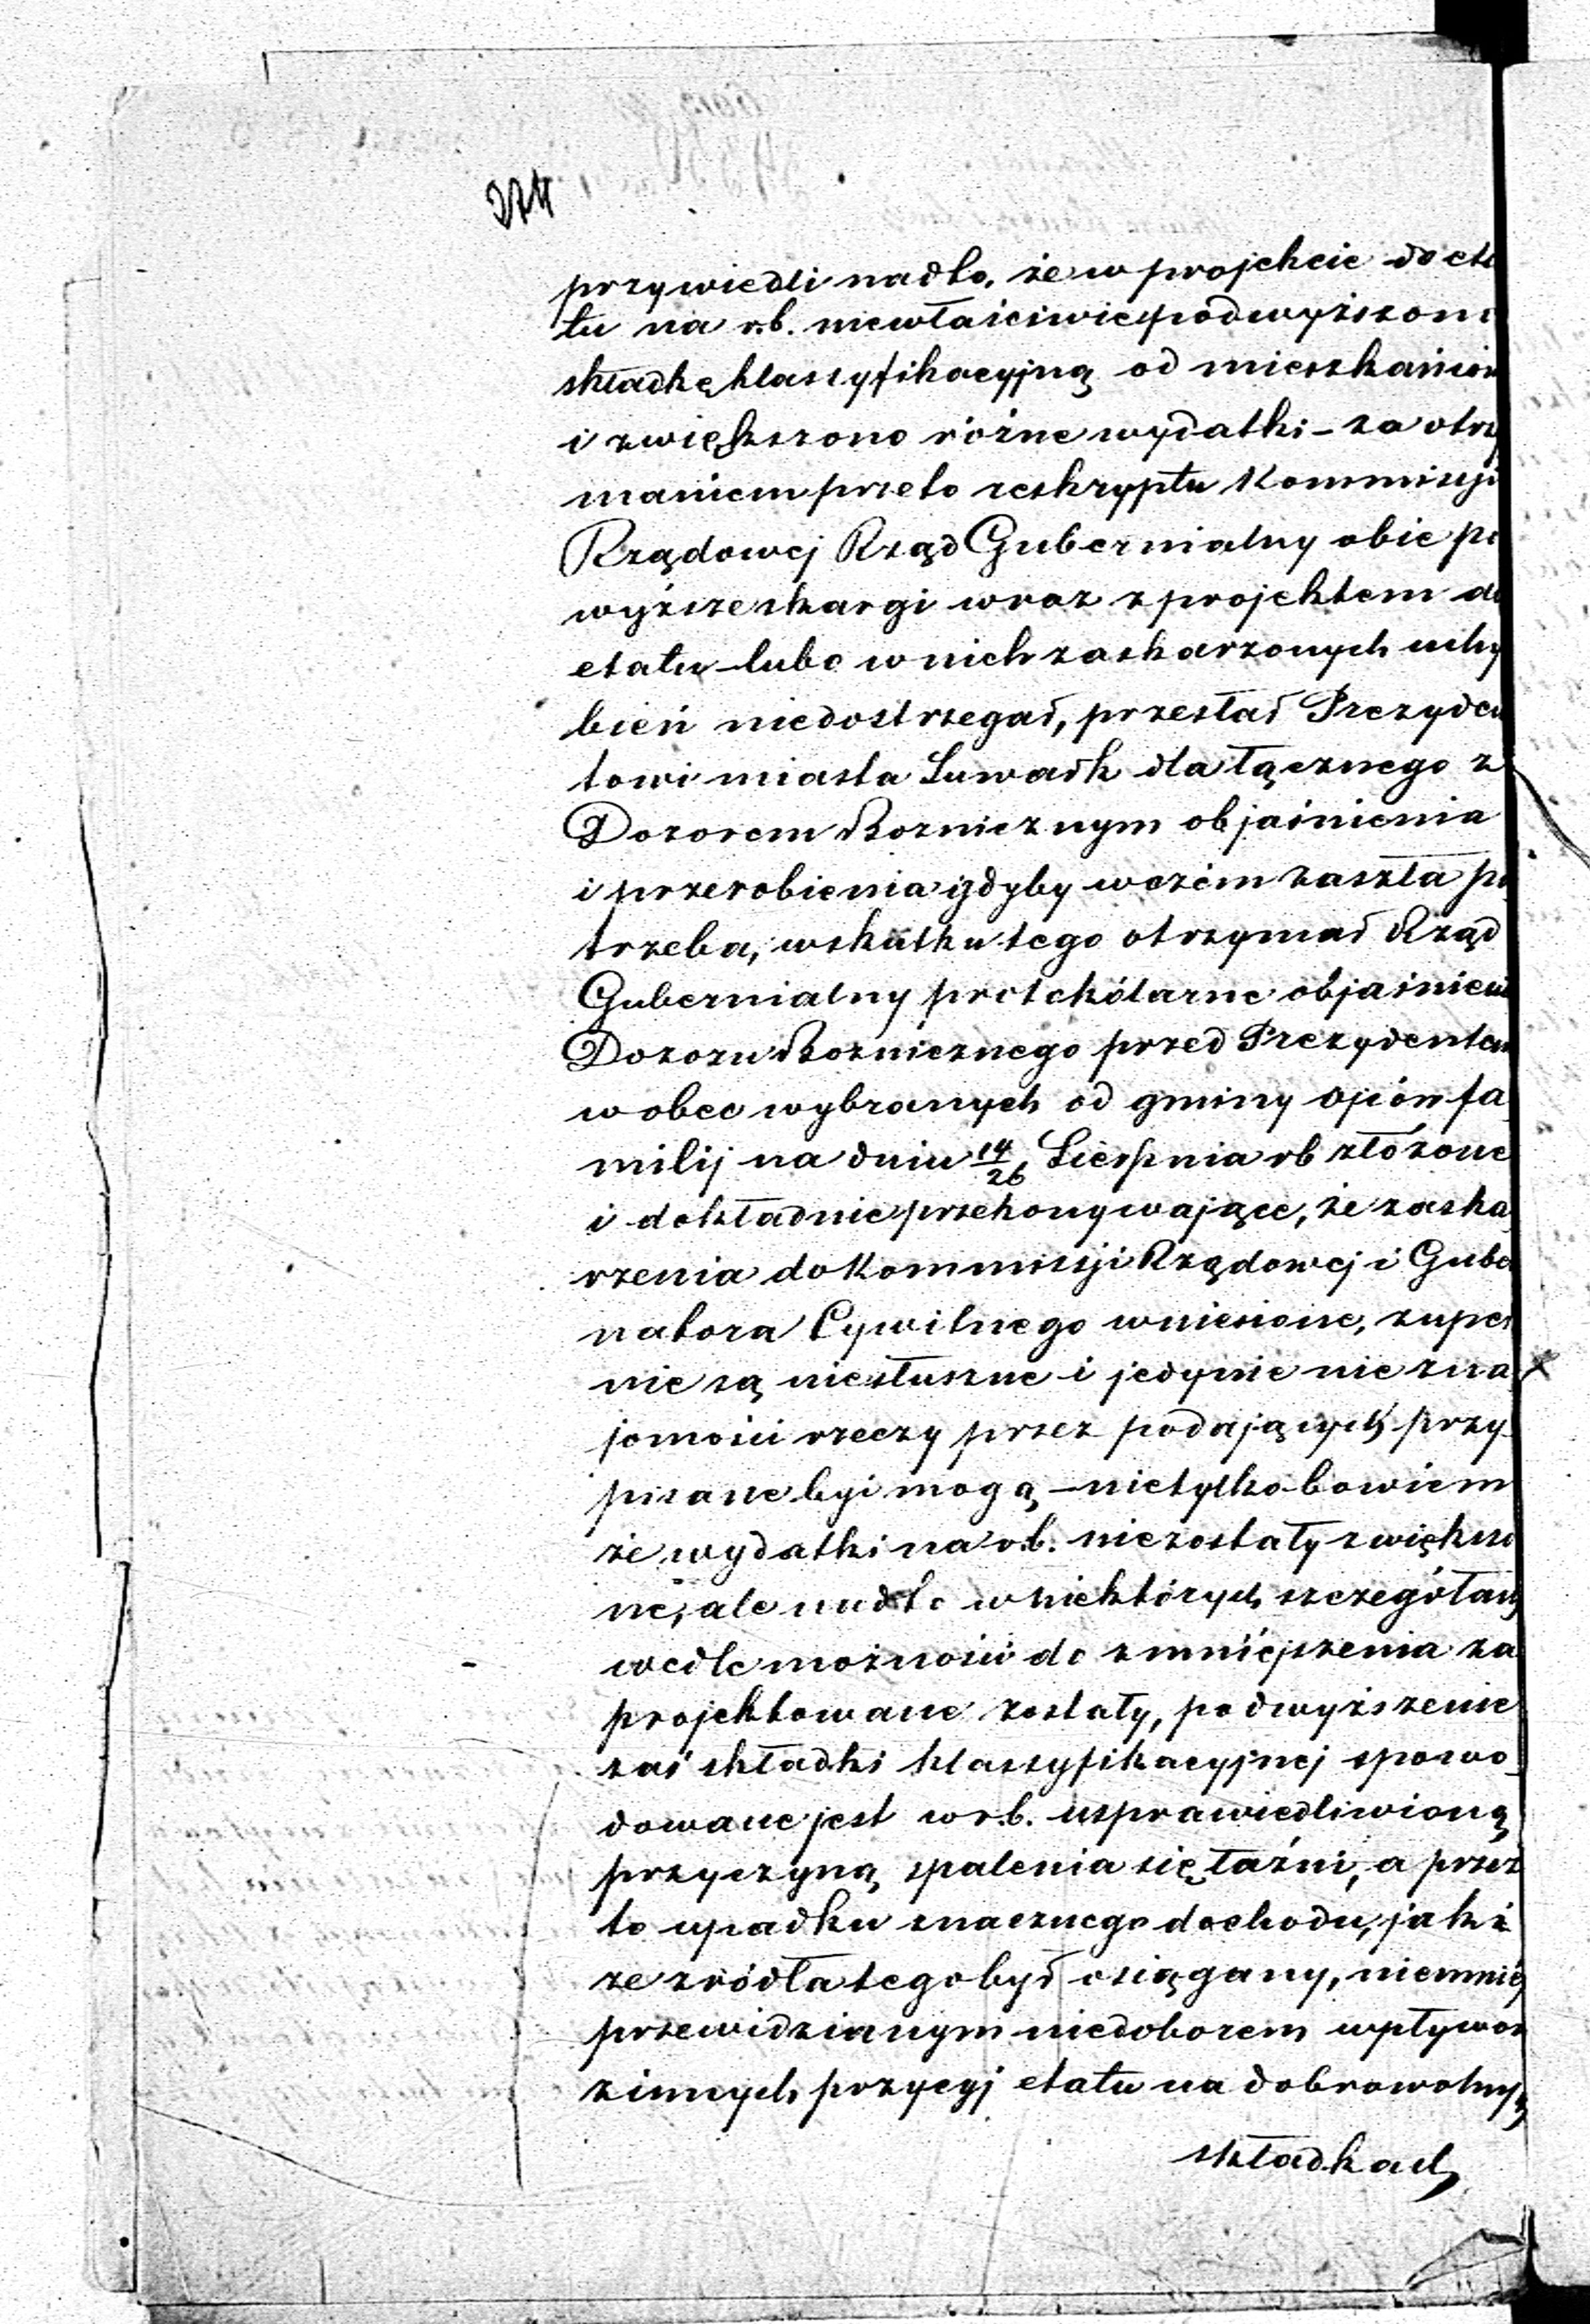 274
przywiedli nadto, że w projekcie do eta
tu na r.b. niewłaściwie podwyższono
składkę klassyfikacyjną od mieszkańców
i zwiększono różne wydatki – za otrzy
maniem przeto reskryptu Kommissyi
Rządowej Rząd Gubernialny obie po
wyższe skargi wraz z projektem do
etatu lubo w nich zaskarżonych uchy
bień niedostrzegał, przesłał Prezyden
towi miasta Suwałk dla łącznego z
Dozorem Bożniczym objaśnienia
i przerobienia gdyby w czém zaszła po
trzeba, wskutku tego otrzymał Rząd
Gubernialny protokólarne objaśnienie
Dozoru Bożniczego przed Prezydentem
w obec wybranych od gminy ojców fa
milij na dniu 14/26 Sierpnia rb złożone
i dokładnie przekonywające, że zaska
rżenia do Kommissyi Rządowej i Guber
natora Cywilnego wniesione, zupeł
nie są niesłuszne i jedynie nie zna
jomości rzeczy przez podających przy
pisane być mogą – nietylko bowiem
że wydatki na r.b. niezostały zwiększo
ne, ale nadto w niektórych szczegółach
wedle możności do zmniéjszenia za
projektowane zostały, podwyższenie
zaś składki klassyfikacyjnej spowo-
dowane jest w r.b. usprawiedliwioną
przyczyną spalenia się łaźni, a przez
to upadku znacznego dochodu, jaki
ze zródła tego był osiągany, niemniéj
przewidzianym niedoborem wpływów
z innych pozycyj etatu na dobrowolnych
składkach